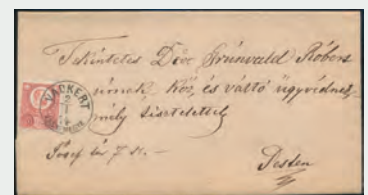 Tekintetes Dőve Grünvald Róbert
úrnak Köz, és váltó ügyvédnek
mély tisztelettel
József tér 7 sz. —
Pesten
VACKERT